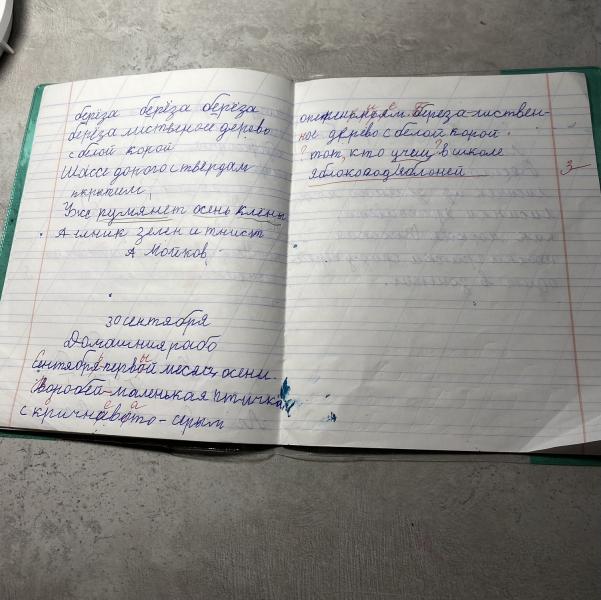 берёза берёза берёза
берёза лиственое дерево
с белой корой
Шассе дорога с твёрдам
пкрытием
Уже румянет осень клены
А елник зелен и тнист
А Мойков
30 сентября
Домашния рабо
Сентября первой месяц осени.
Воробей - маленькая птичка
с кричневото - серым
оперениями. береза - листвен-
ное дерево с белой корой.
тот, кто учещ в школе
яблоко под яблоней
3